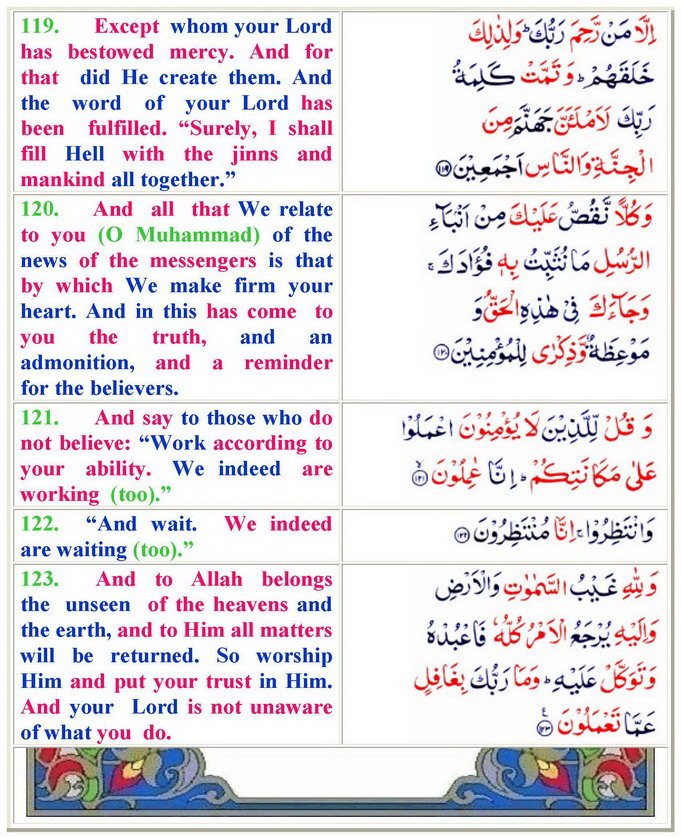 119. Except whom your Lord
has bestowed mercy. And for
that did He create them. And
the word of your Lord has
been fulfilled. “Surely, I shall
fill Hell with the jinns and
mankind all together.”
اِلَّا مَنْ رَّحِمَ رَبُّكَ ؕ وَلِذٰلِكَ
خَلَقَهُمْ ؕ وَتَمَّتْ كَلِمَةُ
رَبِّكَ لَاَمْلَـَٔنَّ جَهَنَّمَ مِنَ
الْجِنَّةِ وَالنَّاسِ اَجْمَعِيْنَ ۝۱۱۹
120. And all that We relate
to you (O Muhammad) of the
news of the messengers is that
by which We make firm your
heart. And in this has come to
you the truth, and an
admonition, and a reminder
for the believers.
وَكُلًّا نَّقُصُّ عَلَيْكَ مِنْ اَنْۢبَآءِ
الرُّسُلِ مَا نُثَبِّتُ بِهٖ فُؤَادَكَ ۚ
وَجَآءَكَ فِيْ هٰذِهِ الْحَقُّ وَ
مَوْعِظَةٌ وَّذِكْرٰى لِلْمُؤْمِنِيْنَ ۝۱۲۰
121. And say to those who do
not believe: “Work according to
your ability. We indeed are
working (too).”
وَ قُلْ لِّلَّذِيْنَ لَا يُؤْمِنُوْنَ اعْمَلُوْا
عَلٰى مَكَانَتِكُمْ ؕ اِنَّا عٰمِلُوْنَ ۝۱۲۱
122. “And wait. We indeed
are waiting (too).”
وَانْتَظِرُوْا ۚ اِنَّا مُنْتَظِرُوْنَ ۝۱۲۲
123. And to Allah belongs
the unseen of the heavens and
the earth, and to Him all matters
will be returned. So worship
Him and put your trust in Him.
And your Lord is not unaware
of what you do.
وَلِلّٰهِ غَيْبُ السَّمٰوٰتِ وَالْاَرْضِ
وَاِلَيْهِ يُرْجَعُ الْاَمْرُ كُلُّهٗ فَاعْبُدْهُ
وَتَوَكَّلْ عَلَيْهِ ؕ وَمَا رَبُّكَ بِغَافِلٍ
عَمَّا تَعْمَلُوْنَ ۝۱۲۳